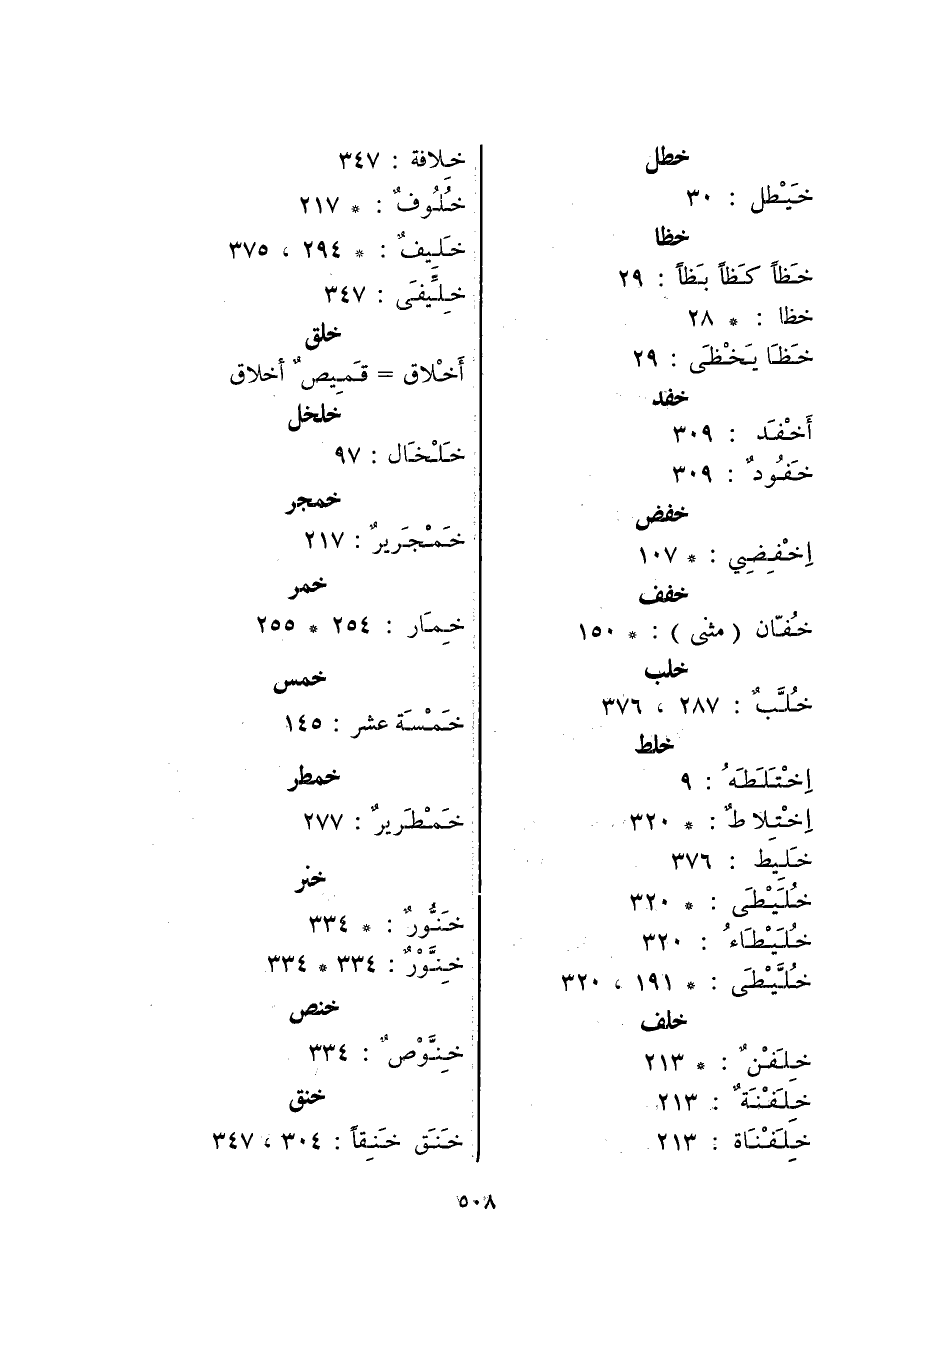 خطل
خَيْطل : ٣٠
خظا
خَظاً كَظاً بَظاً : ٢٩
خظا : * ٢٨
خَظَا يَخْظَى : ٢٩
خفد
أَخْفَد : ٣٠٩
خَفُودٌ : ٣٠٩
خفض
اِخْفِضِي : * ١٠٧
خفف
خُفّان ( مثنى ) : * ١٥٠
خلب
خُلَّبٌ : ٢٨٧ ، ٣٧٦
خلط
اِخْتَلَطَهُ : ٩
اِخْتِلاطٌ : * ٣٢٠
خَلِيط : ٣٧٦
خُلَيْطَى : * ٣٢٠
خُلَيْطَاءُ : ٣٢٠
خُلَّيْطَى : * ١٩١ ، ٣٢٠
خلف
خِلَفْنٌ : * ٢١٣
خِلَفْنَةٌ : ٢١٣
خِلَفْنَاة : ٢١٣
خِلافة : ٣٤٧
خُلُوفٌ : * ٢١٧
خَلِيفٌ : * ٢٩٤ ، ٣٧٥
خِلِّيفَى : ٣٤٧
خلق
أَخْلاق = قَمِيصٌ أخلاق
خلخل
خَلْخَال : ٩٧
خمجر
خَمْجَرِيرٌ : ٢١٧
خمر
خِمَار : ٢٥٤ * ٢٥٥
خمس
خَمْسَة عشر : ١٤٥
خمطر
خَمْطَرِيرٌ : ٢٧٧
خنر
خَنُّورٌ : * ٣٣٤
خِنَّوْرٌ : ٣٣٤ * ٣٣٤
خنص
خِنَّوْصٌ : ٣٣٤
خنق
خَنَق خَنِقاً : ٣٠٤ ، ٣٤٧
٥٠٨